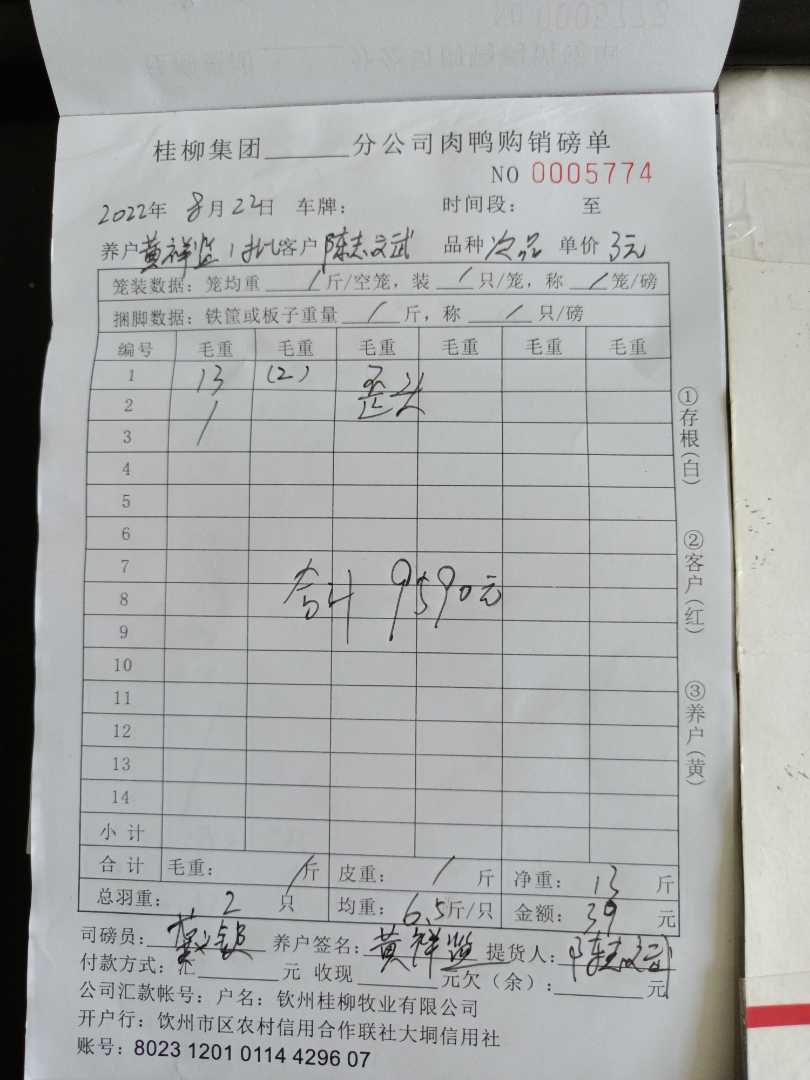 桂柳集团______分公司肉鸭购销磅单
NO 0005774
2022年 8月22日 车牌： 时间段： 至
养户黄祥监1批客户陈志文武 品种次品 单价3元
笼装数据：笼均重 / 斤/空笼，装 / 只/笼，称 / 笼/磅
捆脚数据：铁筐或板子重量 / 斤，称 / 只/磅
编号 毛重 毛重 毛重 毛重 毛重 毛重
1 13 (2) 歪头
2 /
3
4
5
6
7
8 合计 9590元
9
10
11
12
13
14
小计
合计 毛重： / 斤 皮重： / 斤 净重： 13 斤
总羽重： 2 只 均重： 6.5斤/只 金额： 39 元
司磅员： 养户签名：黄祥监 提货人：陈志文武
付款方式：汇______元 收现______元欠（余）：______元
公司汇款帐号：户名：钦州桂柳牧业有限公司
开户行：钦州市区农村信用合作联社大垌信用社
账号：8023 1201 0114 4296 07
①存根（白）
②客户（红）
③养户（黄）